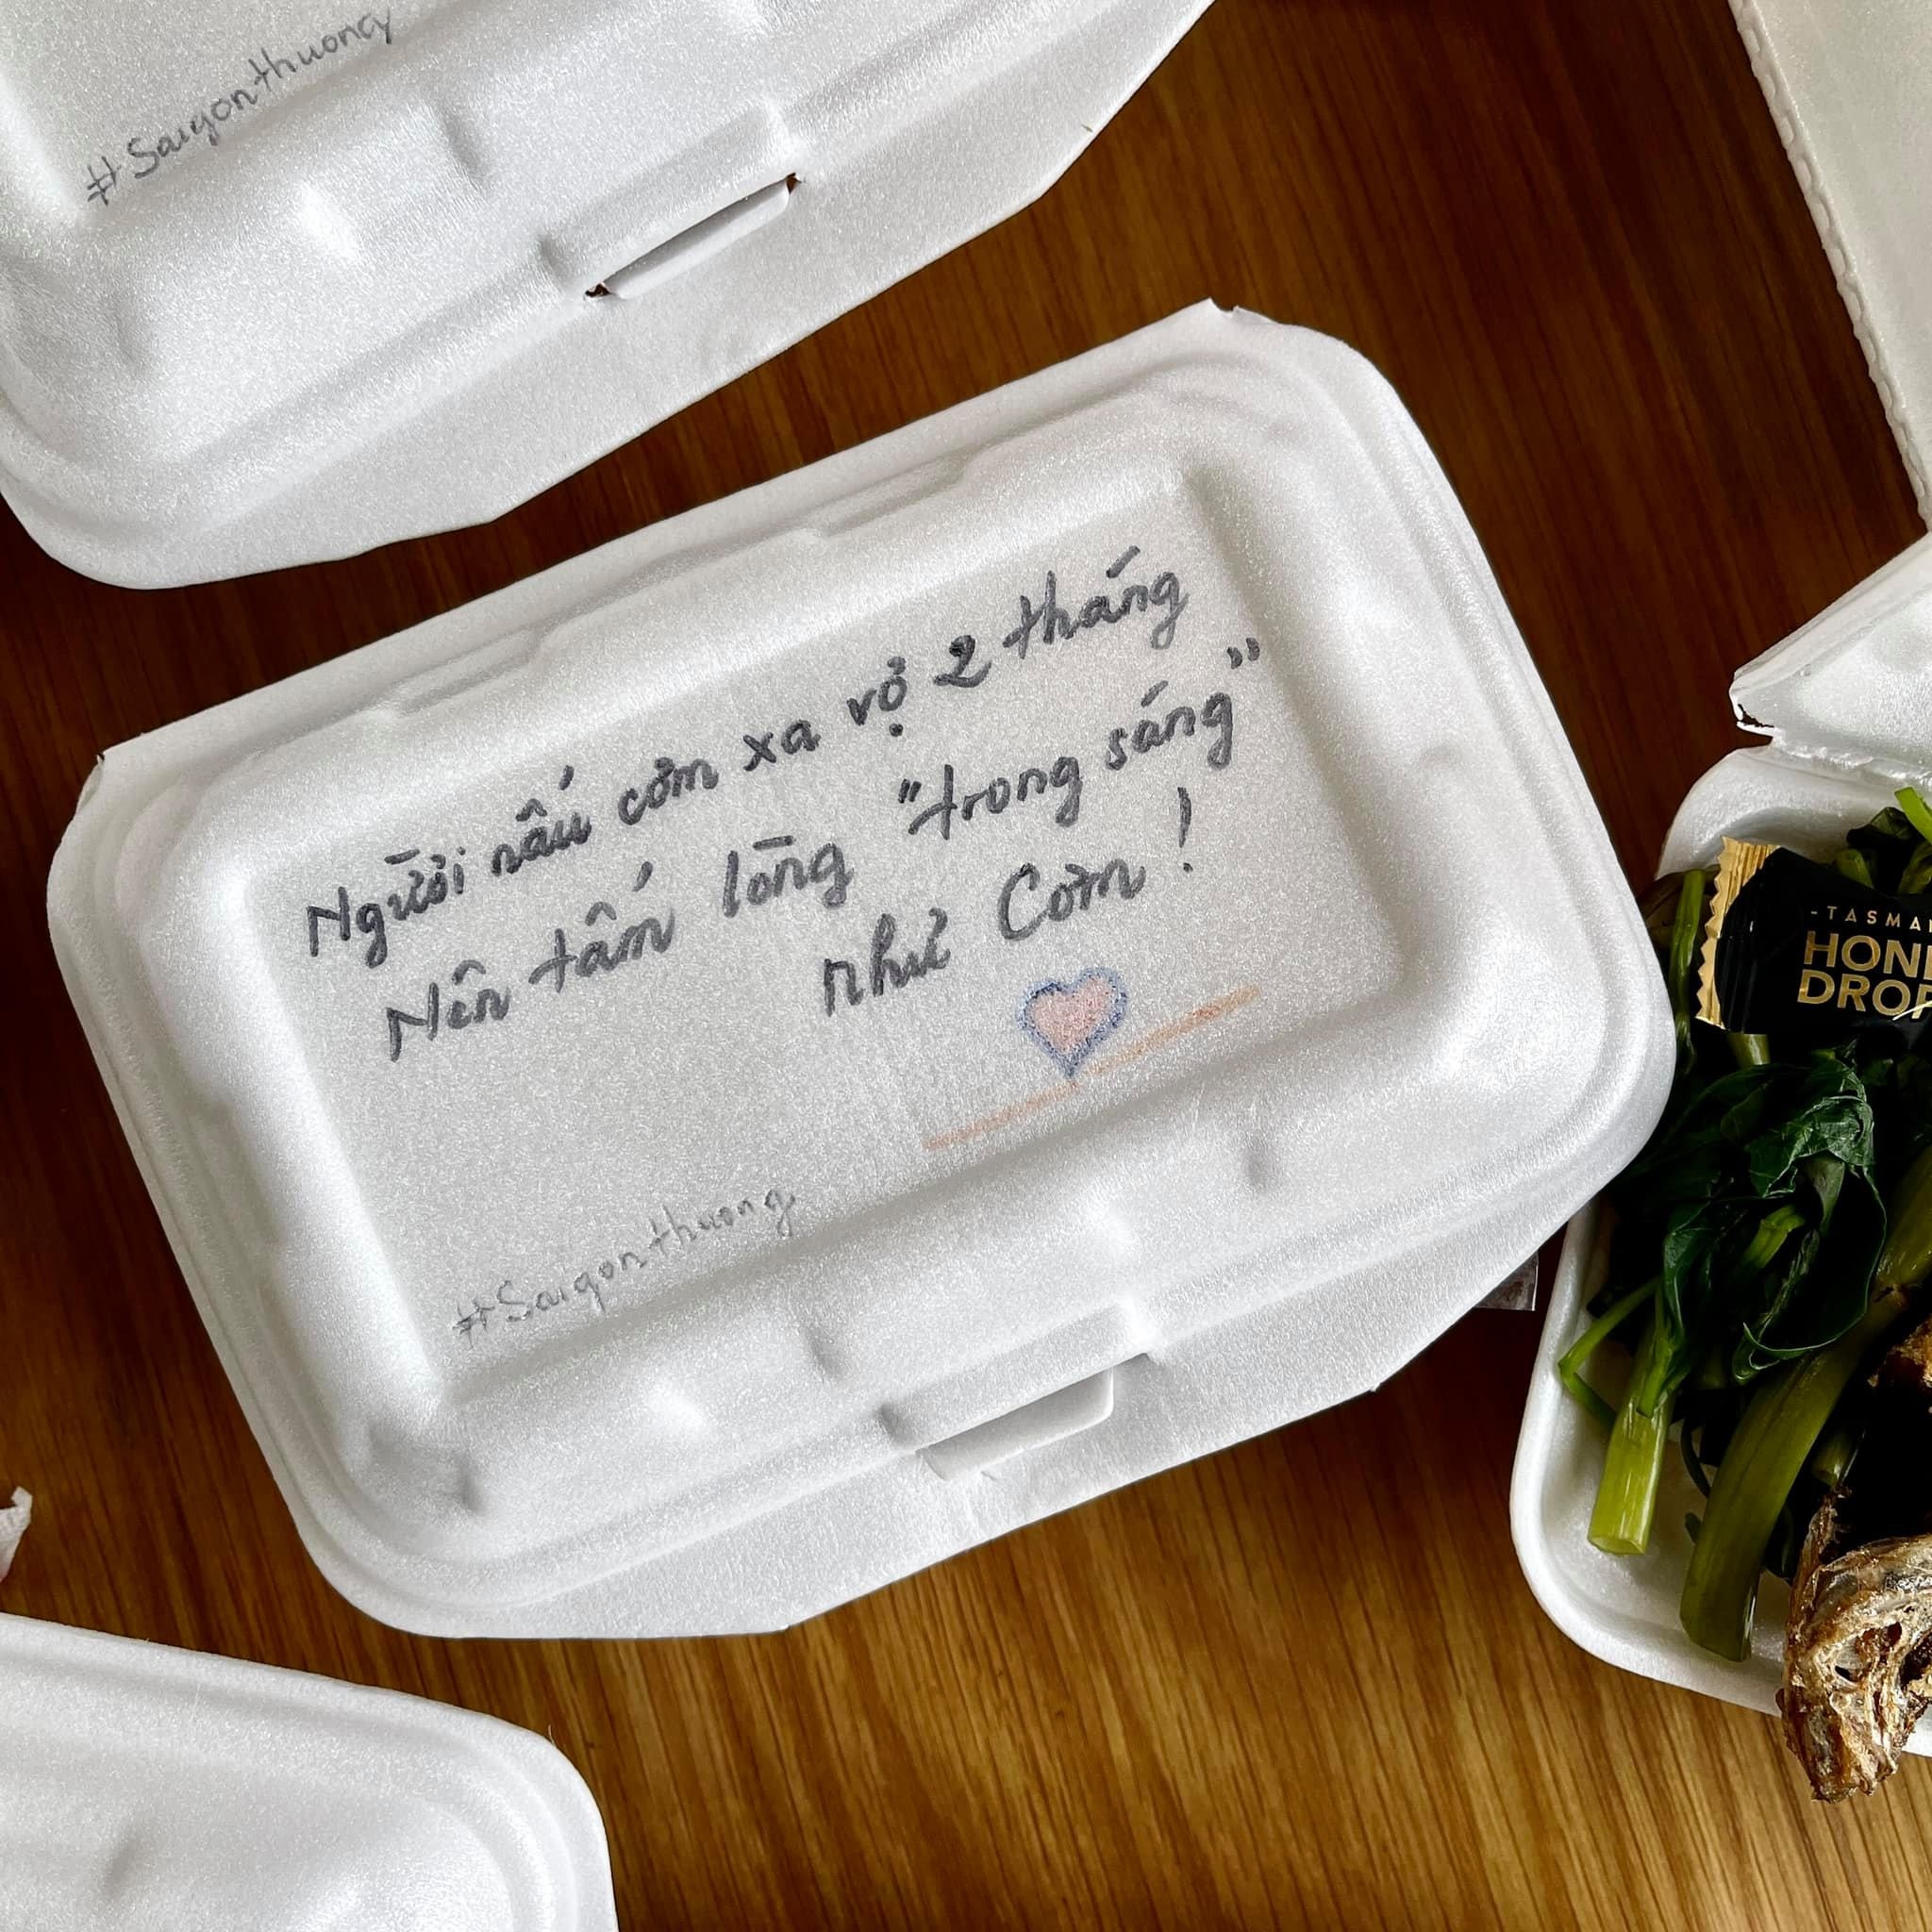 #Saigonthuong
Người nấu cơm xa vợ 2 tháng
Nên tấm lòng "trong sáng"
như Cơm !
#Saigonthuong
-TASMA
HON
DROP